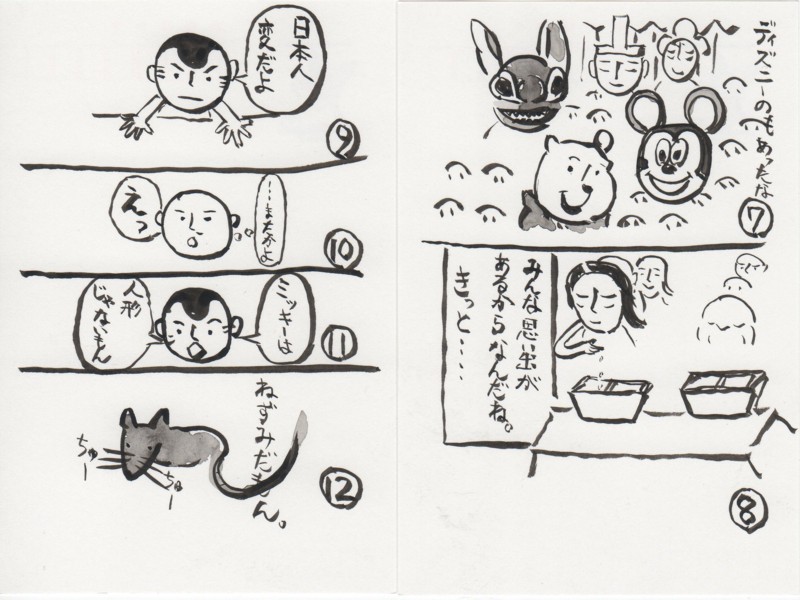 ディズニーのもあったな
⑦
みんな思い出が
あるからなんだね。
きっと……
⑧
日本人
変だよ
⑨
…またかよ
えっ
⑩
ミッキーは
人形
じゃないもん
⑪
ねずみだもん。
ちゅー
ちゅー
⑫